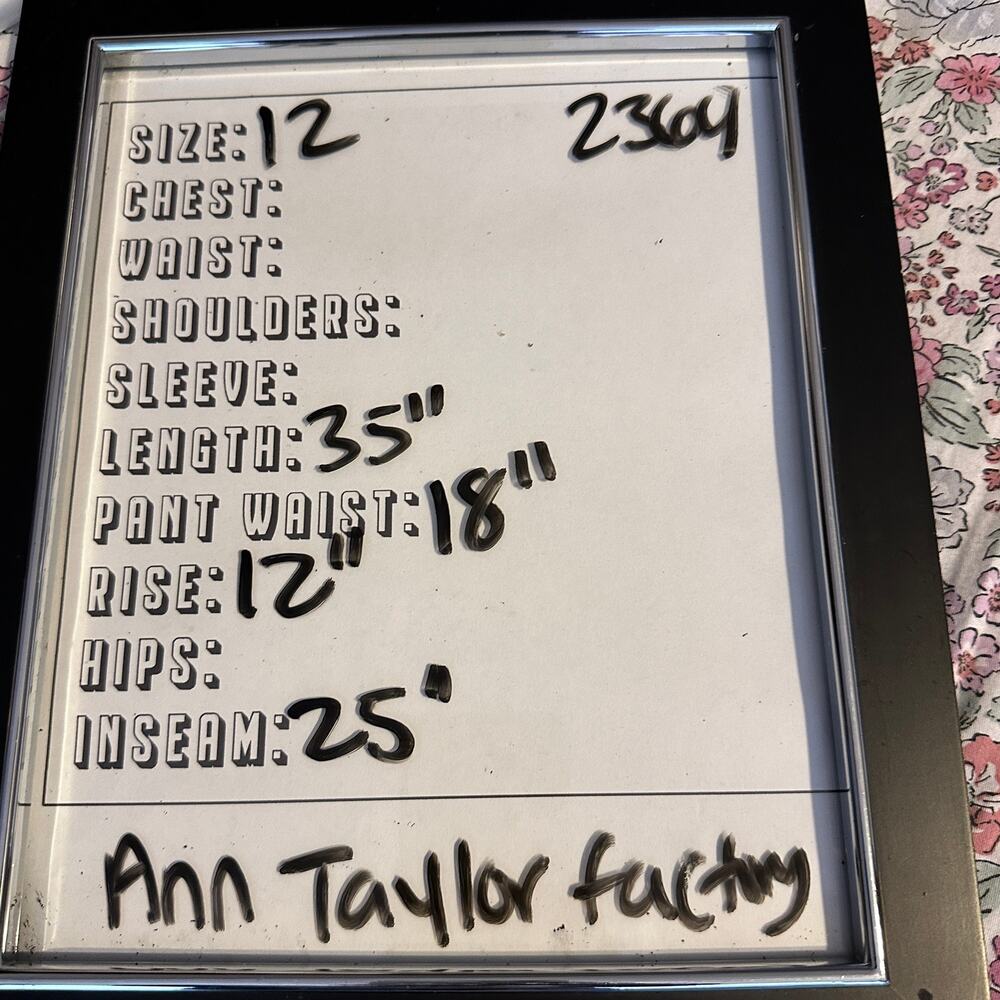 SIZE: 12 2364
CHEST:
WAIST:
SHOULDERS:
SLEEVE:
LENGTH: 35"
PANT WAIST: 18"
RISE: 12"
HIPS:
INSEAM: 25"
Ann Taylor factory